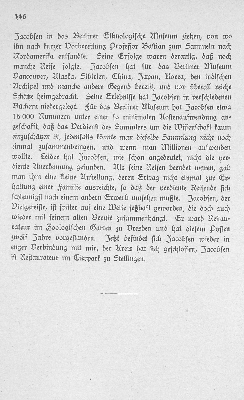 146
Jacobsen in das Berliner Ethnologische Museum ziehen, von wo
ihn nach kurzer Vorbereitung Professor Bastian zum Sammeln nach
Nordamerika entsandte. Seine Erfolge waren derartig, daß noch
manche Reise folgte. Jacobsen hat für das Berliner Museum
Vancouver, Alaska, Sibirien, China, Japan, Korea, den indischen
Archipel und manche andere Gegend bereist, und von überall reiche
Schätze heimgebracht. Seine Erlebnisse hat Jacobsen in verschiedenen
Büchern niedergelegt. Für das Berliner Museum hat Jacobsen etwa
16 000 Nummern unter einer so minimalen Kostenaufwendung an-
geschafft, daß das Verdienst des Sammlers um die Wissenschaft kaum
einzuschätzen ist, jedenfalls könnte man dieselbe Sammlung nicht noch
einmal zusammenbringen, und wenn man Millionen aufwenden
wollte. Leider hat Jacobsen, wie schon angedeutet, nicht die ver-
diente Anerkennung gefunden. Als seine Reisen beendet waren, gab
man ihm eine kleine Anstellung, deren Ertrag nicht einmal zur Er-
haltung einer Familie ausreichte, so daß der verdiente Reisende sich
schleunigst nach einem andern Erwerb umsehen mußte. Jacobsen, der
Vielgereiste, ist später auf eine Weise seßhaft geworden, die doch auch
wieder mit seinem alten Berufe zusammenhängt. Er ward Restau-
rateur im Zoologischen Garten zu Dresden und hat diesem Posten
zwölf Jahre vorgestanden. Jetzt befindet sich Jacobsen wieder in
enger Verbindung mit mir, der Kreis hat sich geschlossen, Jacobsen
ist Restaurateur im Tierpark zu Stellingen.